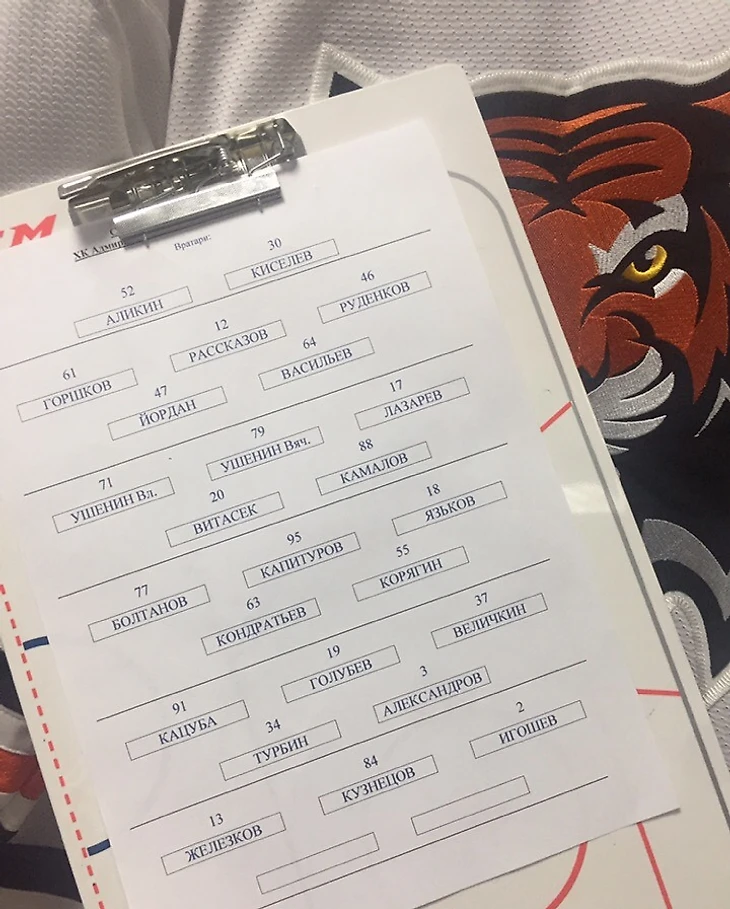 ХК Адмир
Вратари:
52 30
АЛИКИН КИСЕЛЕВ
61 12 46
ГОРШКОВ РАССКАЗОВ РУДЕНКОВ
47 64
ЙОРДАН ВАСИЛЬЕВ
71 79 17
УШЕНИН Вл. УШЕНИН Вяч. ЛАЗАРЕВ
20 88
ВИТАСЕК КАМАЛОВ
77 95 18
БОЛТАНОВ КАПИТУРОВ ЯЗЬКОВ
63 55
КОНДРАТЬЕВ КОРЯГИН
91 19 37
КАЦУБА ГОЛУБЕВ ВЕЛИЧКИН
34 3
ТУРБИН АЛЕКСАНДРОВ
13 84 2
ЖЕЛЕЗКОВ КУЗНЕЦОВ ИГОШЕВ